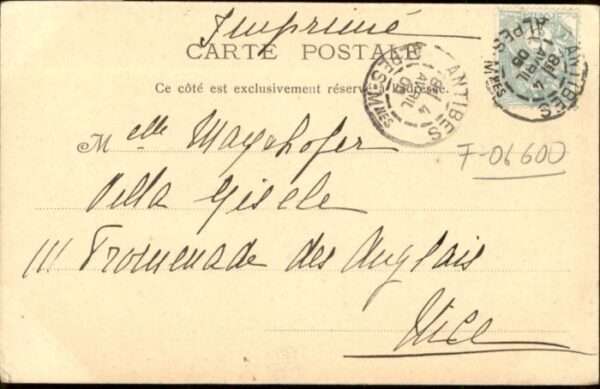 Imprimé
CARTE POSTALE
Ce côté est exclusivement réservé à l'adresse.
ANTIBES
ALPES-MMES
18
4
AVRIL
05
ANTIBES
ALPES-MMES
18
4
AVRIL
05
Melle Mayrhofer
Villa Gisele
111 Promenade des Anglais
Nice
F-06600